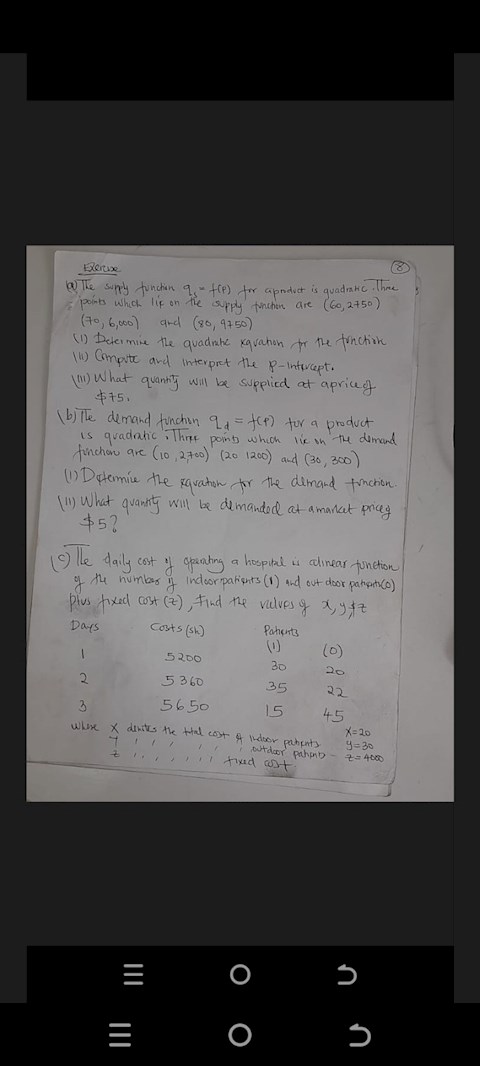 Exercise
8
(a) The supply function qs = f(p) for a product is quadratic. Three
points which lie on the supply function are (60, 2750)
(70, 6,000) and (80, 9750)
(i) Determine the quadratic equation for the function
(ii) Compute and interpret the p-intercept.
(iii) What quantity will be supplied at a price of
$75.
(b) The demand function qd = f(p) for a product
is quadratic. Three points which lie on the demand
function are (10, 2700) (20 1200) and (30, 300)
(i) Determine the equation for the demand function
(ii) What quantity will be demanded at a market price of
$5?
(c) The daily cost of operating a hospital is a linear function
of the number of indoor patients (I) and out door patients (O)
plus fixed cost (z), find the values of x, y, $ z
Days Costs (sh) Patients
(I) (O)
1 5200 30 20
2 5360 35 22
3 5650 15 45
where X denotes the total cost of indoor patients X=20
Y , , , , , outdoor patients - Y=30
Z , , , , , fixed cost. Z=4000